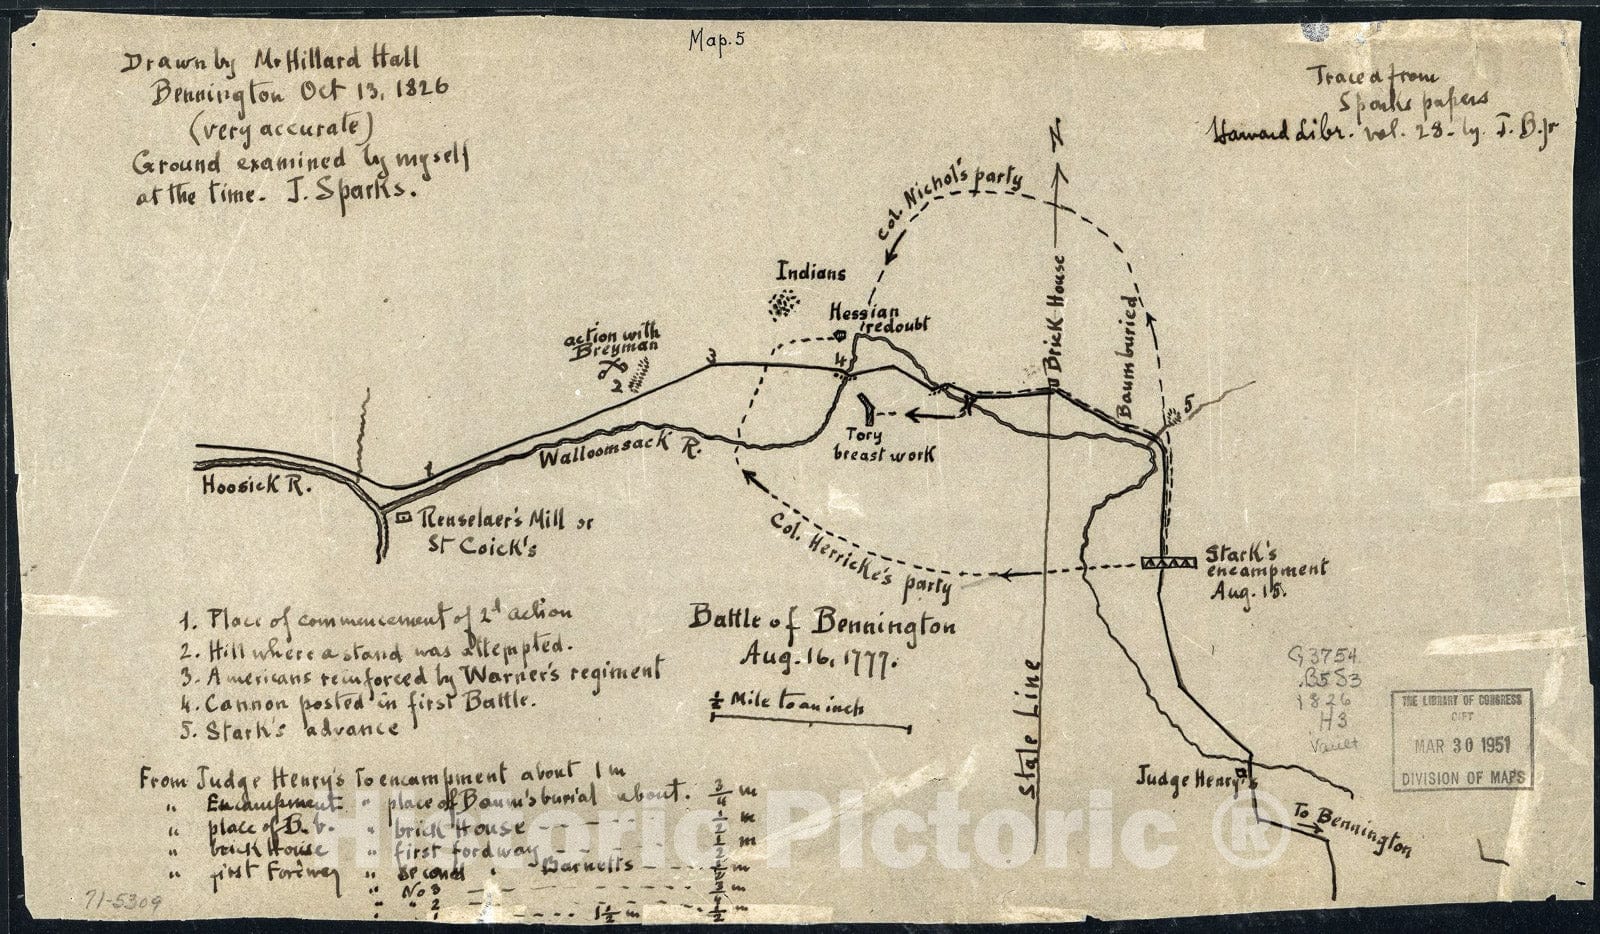 Map. 5
Drawn by Mr Hillard Hall
Bennington Oct 13, 1826
(very accurate)
Ground examined by myself
at the time. J. Sparks.
Traced from
Sparks papers
Harvard Libr. vol. 28. by. J. B. Jr
N
Col. Nichol's party
Indians
Hessian
redoubt
action with
Breyman
2
3
4
Brick House
Baum buried
5
Tory
breast work
Walloomsack R.
Hoosick R.
1
Renselaer's Mill or
St Coick's
Col. Herricke's party
Stark's
encampment
Aug. 15.
State Line
Battle of Bennington
Aug. 16, 1777.
½ Mile to an inch
1. Place of commencement of 2d action
2. Hill where a stand was attempted.
3. Americans reinforced by Warner's regiment
4. Cannon posted in first Battle.
5. Stark's advance
From Judge Henry's to encampment about 1 m
" Encampment " place of Baum's burial about. ¾ m
" place of B. b. " brick House - - - - ½ m
" brick House " first fordway - - - ½ m
" first Fordway " second " Barnetts - - -
" No 3 - - - -
" " 2 - - - - 1½ m
Judge Henry's
To Bennington
G3754
.B5S3
1826
.H3
Vault
THE LIBRARY OF CONGRESS
GIFT
MAR 30 1951
DIVISION OF MAPS
71-5309
Historic Pictoric ®